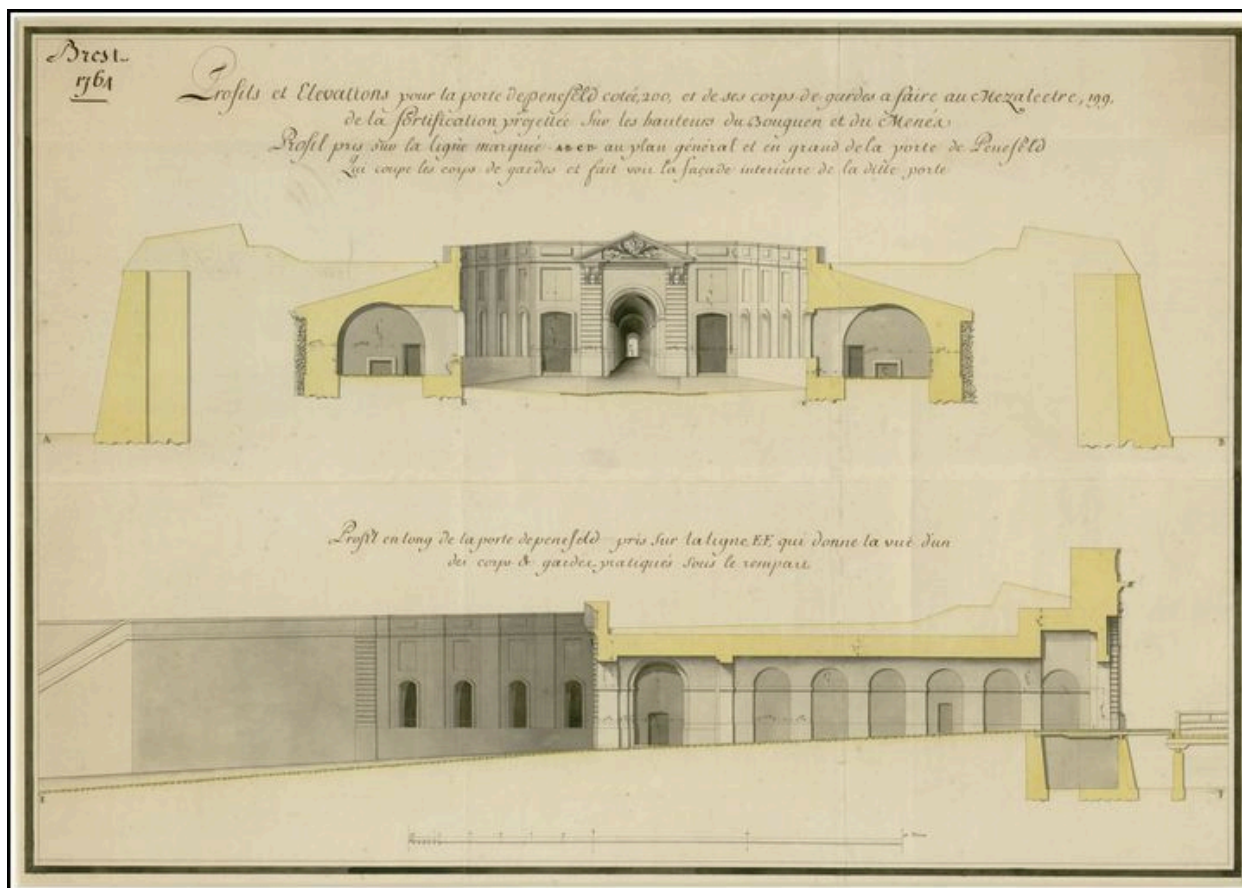 Brest
1764
Profils et Elevations pour la porte de penefeld cotée, 200, et de ses corps de gardes a faire au Mezalectre, 199.
de la fortification projettée Sur les hauteurs du Bouguen et du Menés
Profil pris sur la ligne marquée ABCD au plan général et en grand de la porte de Penefeld
Qui coupe les corps de gardes et fait voir la façade interieure de la ditte porte
A
B
Profil en long de la porte de penefeld pris Sur la ligne E.F. qui donne la vuë d'un
des corps de gardes pratiqués Sous le rempart